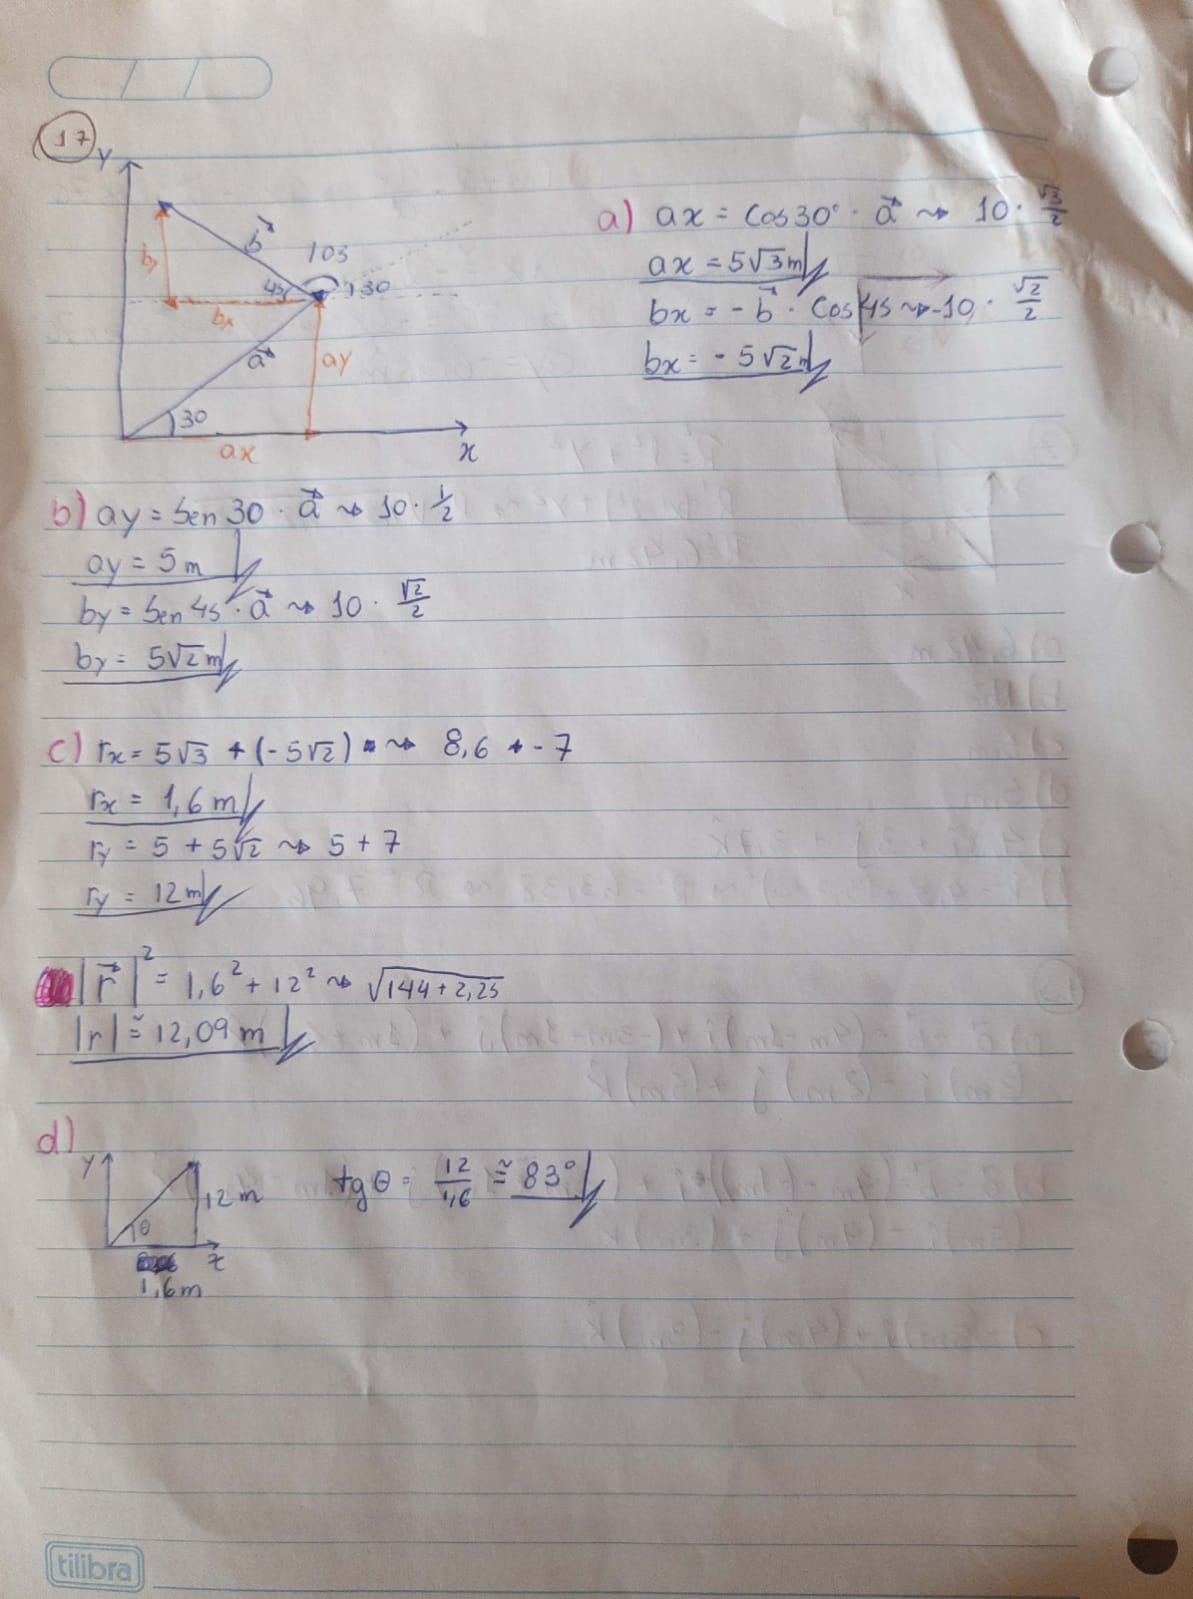 17
y
b⃗ 105
by 45 130
bx
a⃗ ay
30
ax x
a) ax = cos30° · a⃗ ⇝ 10 · √3/2
ax = 5√3 m
bx = - b⃗ · cos 45 ⇝ -10 · √2/2
bx = - 5√2 m
b) ay = sen 30 · a⃗ ⇝ 10 · 1/2
ay = 5 m
by = sen 45 · a⃗ ⇝ 10 · √2/2
by = 5√2 m
c) rx = 5√3 + (-5√2) ⇝ 8,6 + -7
rx = 1,6 m
ry = 5 + 5√2 ⇝ 5 + 7
ry = 12 m
|r⃗|² = 1,6² + 12² ⇝ √144 + 2,25
|r| ≅ 12,09 m
d)
y 12 m tg θ = 12/1,6 ≅ 83°
θ
x
1,6 m
tilibra